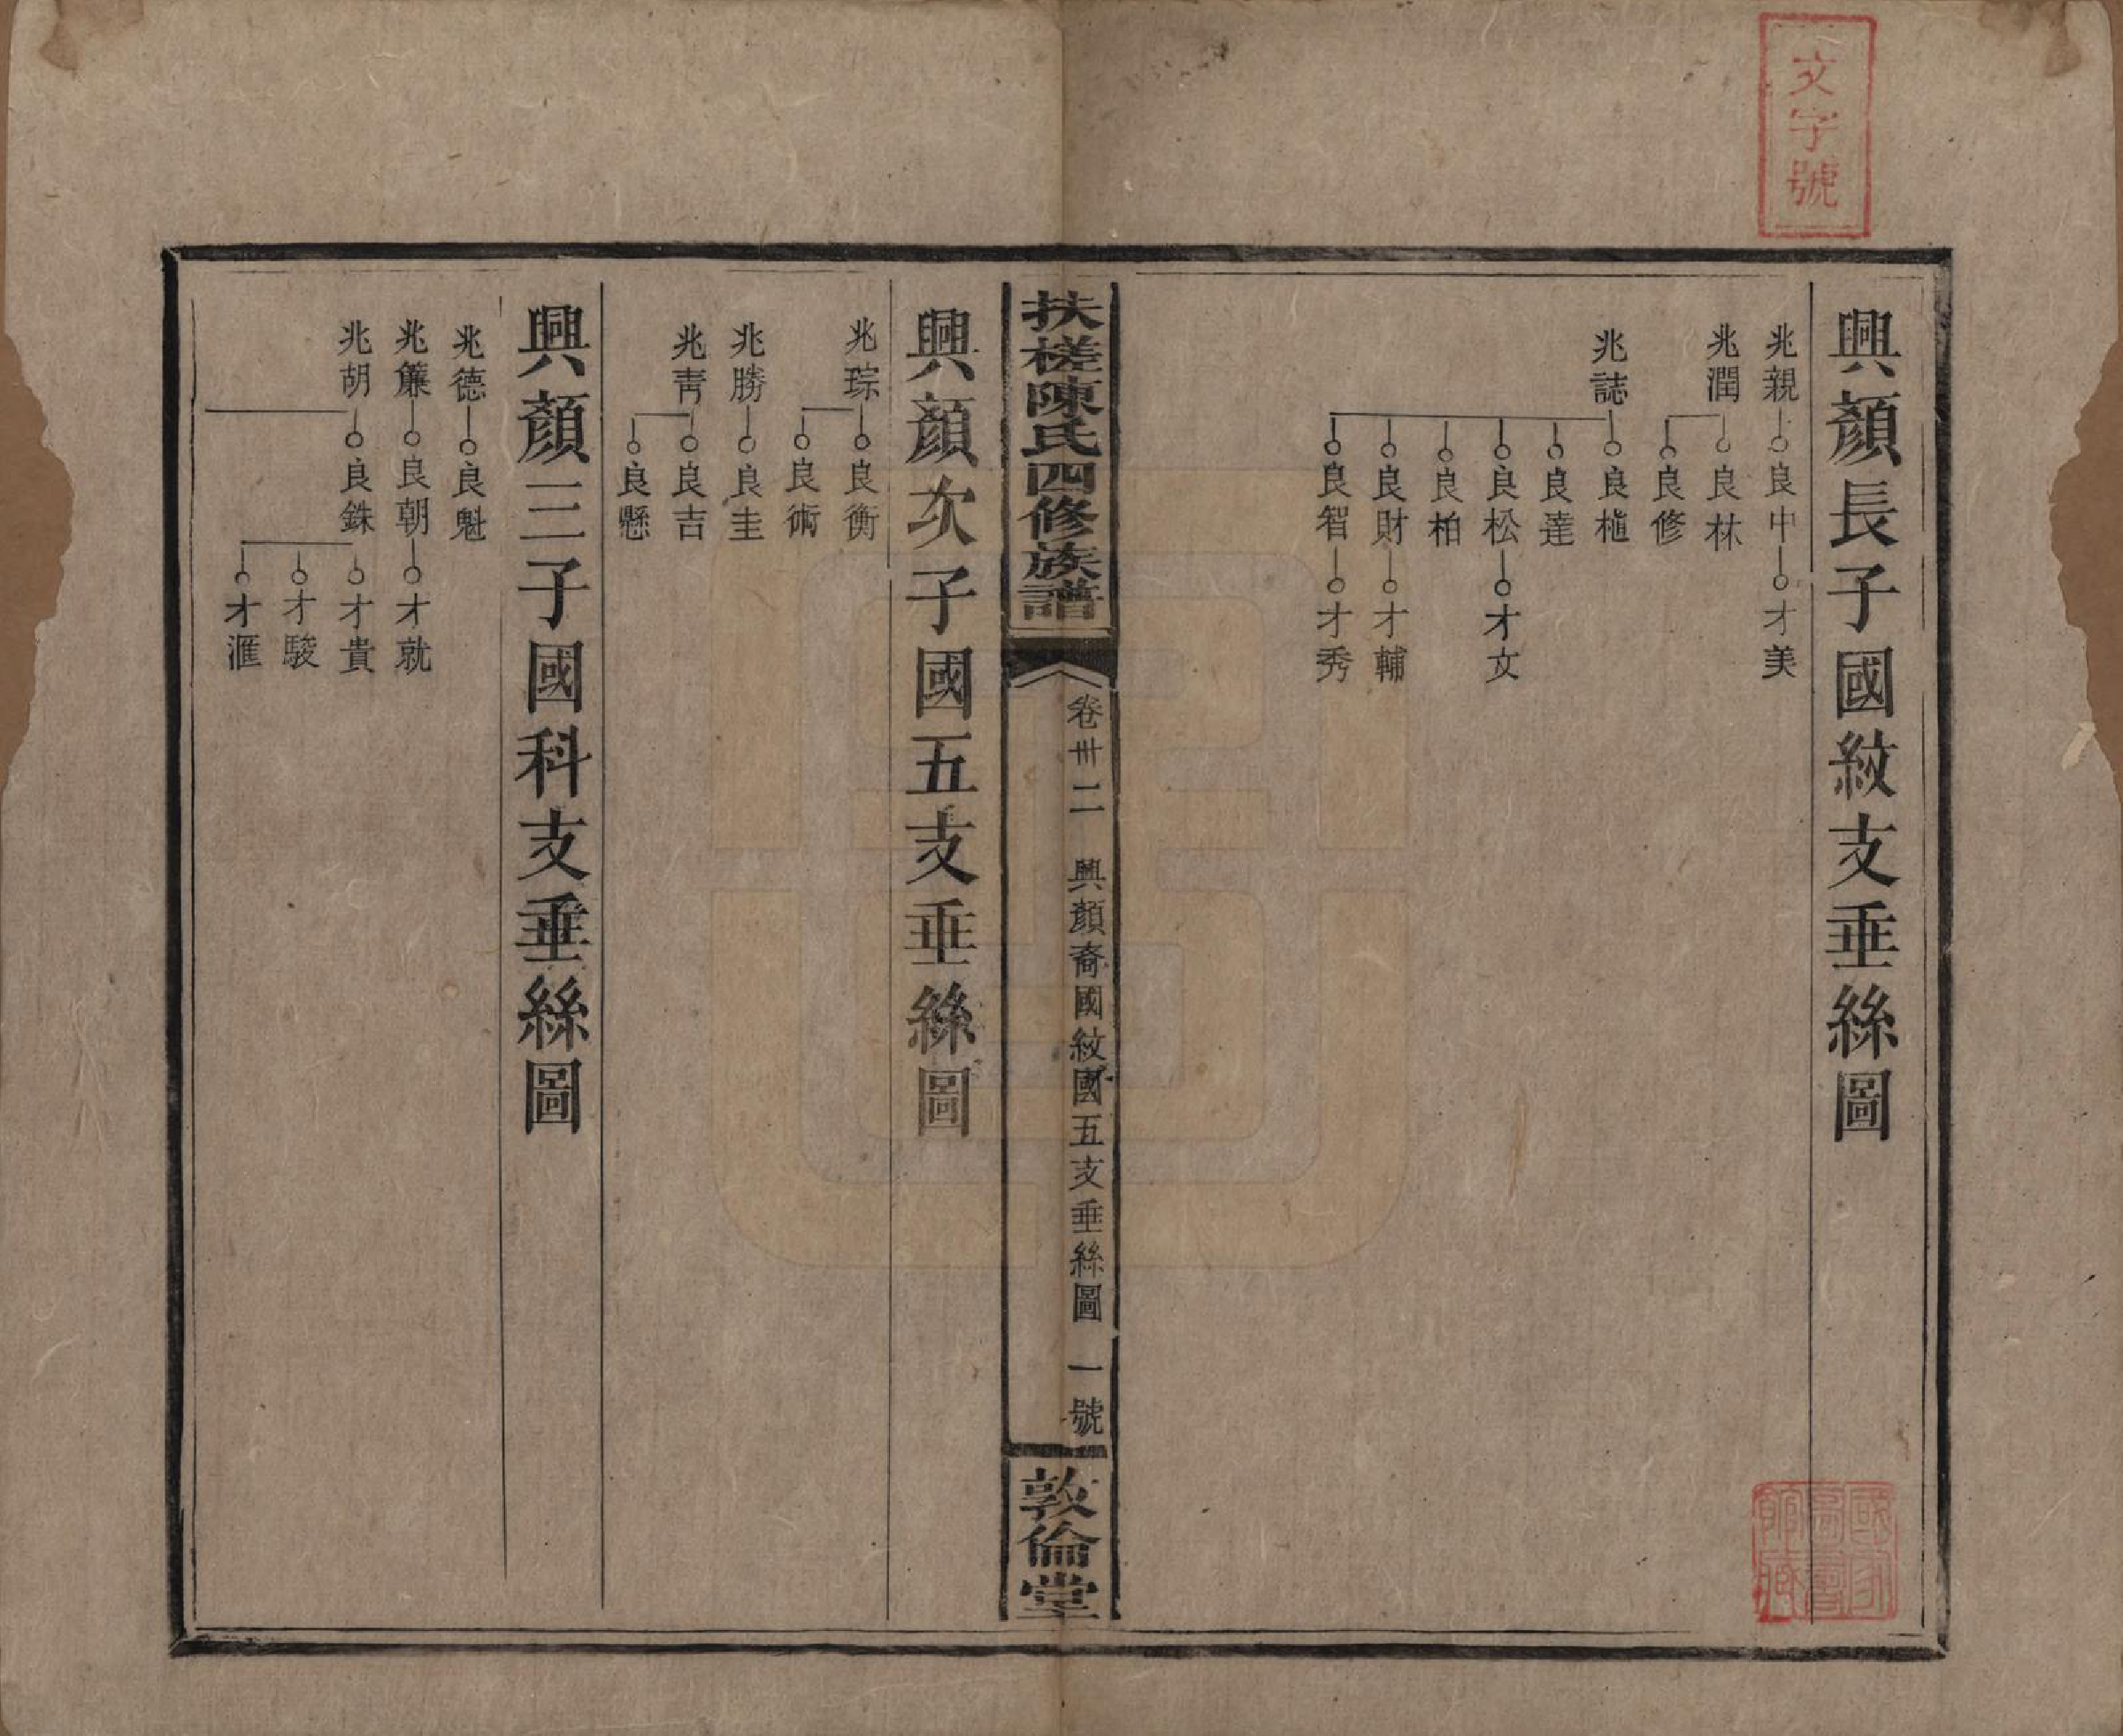 文字號
興顏長子國紋支垂絲圖
兆親 良中 才美
兆潤 良林
良修
兆誌 良植
良達
良松 才文
良柏
良財 才輔
良智 才秀
國家圖書館藏
扶槎陳氏四修族譜
卷卅二 興顏裔國紋國五支垂絲圖 一號
敦倫堂
興顏次子國五支垂絲圖
兆琮 良衡
良術
兆勝 良圭
兆靑 良吉
良懸
興顏三子國科支垂絲圖
兆德 良魁
兆簾 良朝 才就
兆胡 良銖 才貴
才駿
才滙